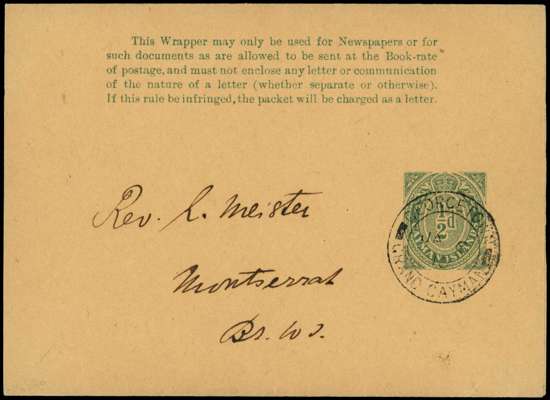 This Wrapper may only be used for Newspapers or for
such documents as are allowed to be sent at the Book-rate
of postage, and must not enclose any letter or communication
of the nature of a letter (whether separate or otherwise).
If this rule be infringed, the packet will be charged as a letter.
½d
CAYMAN ISLANDS
GRAND CAYMAN
Rev. L. Meister
Montserrat
Br. W.I.